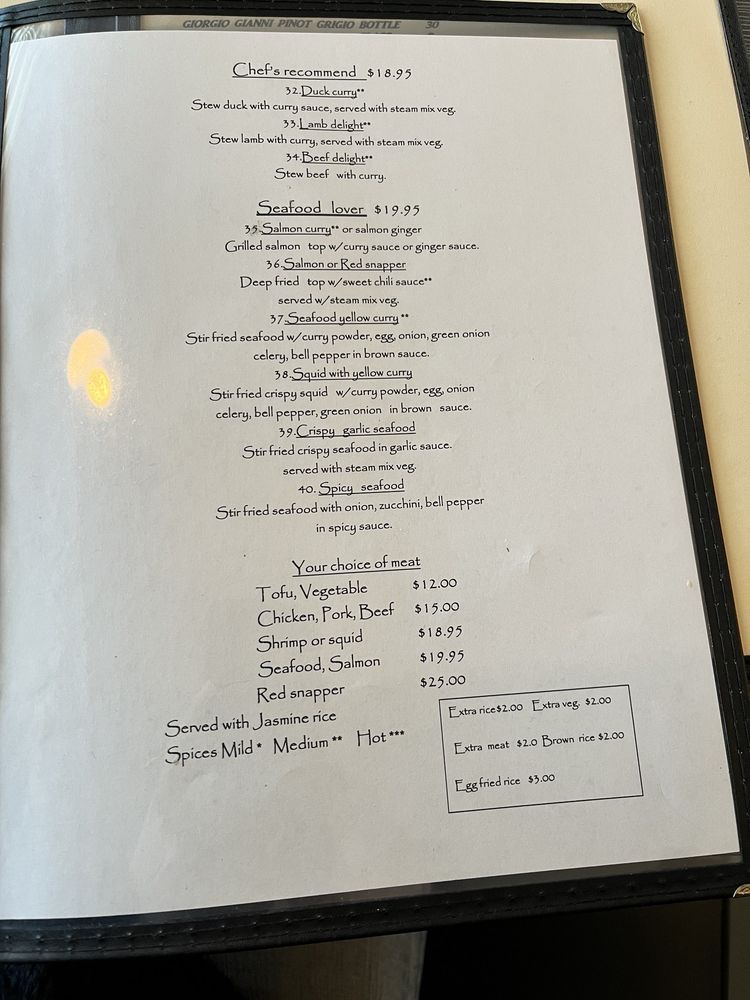 GIORGIO GIANNI PINOT GRIGIO BOTTLE 30
Chef's recommend $18.95
32.Duck curry**
Stew duck with curry sauce, served with steam mix veg.
33.Lamb delight**
Stew lamb with curry, served with steam mix veg.
34.Beef delight**
Stew beef with curry.
Seafood lover $19.95
35.Salmon curry** or salmon ginger
Grilled salmon top w/curry sauce or ginger sauce.
36.Salmon or Red snapper
Deep fried top w/sweet chili sauce**
served w/steam mix veg.
37.Seafood yellow curry **
Stir fried seafood w/curry powder, egg, onion, green onion
celery, bell pepper in brown sauce.
38.Squid with yellow curry
Stir fried crispy squid w/curry powder, egg, onion
celery, bell pepper, green onion in brown sauce.
39.Crispy garlic seafood
Stir fried crispy seafood in garlic sauce.
served with steam mix veg.
40. Spicy seafood
Stir fried seafood with onion, zucchini, bell pepper
in spicy sauce.
Your choice of meat
Tofu, Vegetable $12.00
Chicken, Pork, Beef $15.00
Shrimp or squid $18.95
Seafood, Salmon $19.95
Red snapper $25.00
Served with Jasmine rice
Spices Mild * Medium ** Hot ***
Extra rice$2.00 Extra veg. $2.00
Extra meat $2.0 Brown rice $2.00
Egg fried rice $3.00